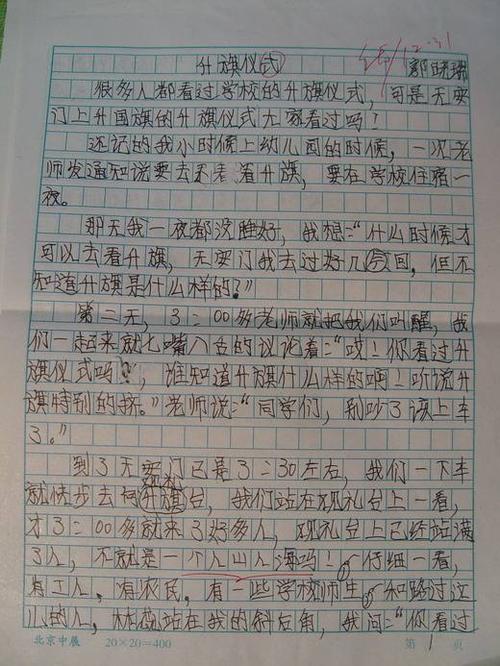 升旗仪式
12.31
很多人都看过学校的升旗仪式，可是天安
门上升国旗的升旗仪式大家看过吗！
还记的我小时候上幼儿园的时候，一次老
师发通知说要去看升旗，要在学校住宿一
夜。
那天我一夜都没睡好，我想：“什么时候才
可以去看升旗，天安门我去过好几回，但不
知道升旗是什么样的？”
第二天，3：00多老师就把我们叫醒，我
们一起来就七嘴八舌的议论着：“哎！你看过升
旗仪式吗？，谁知道升旗什么样的啊！听说升
旗特别的挤。”老师说：“同学们，别吵了该上车
了。”
到了天安门已是3：30左右，我们一下车
就快步去向升旗台，我们站在观礼台上一看，
才3：00多就来了好多人，观礼台上已经站满
了人，不就是一个人山人海吗！仔细一看，
有工人，有农民，有一些学校师生和路过这
儿的人，站在我的斜右角，我问：“你看过
北京中晨 20×20=400 第1页